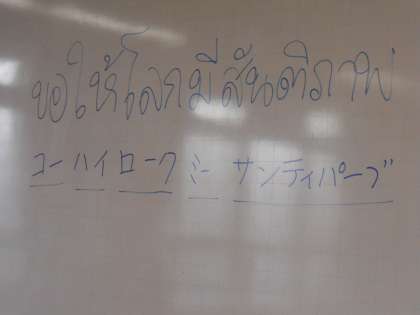 ขอให้โลกมีสันติภาพ
コー ハイ ローク ミー サンティパープ